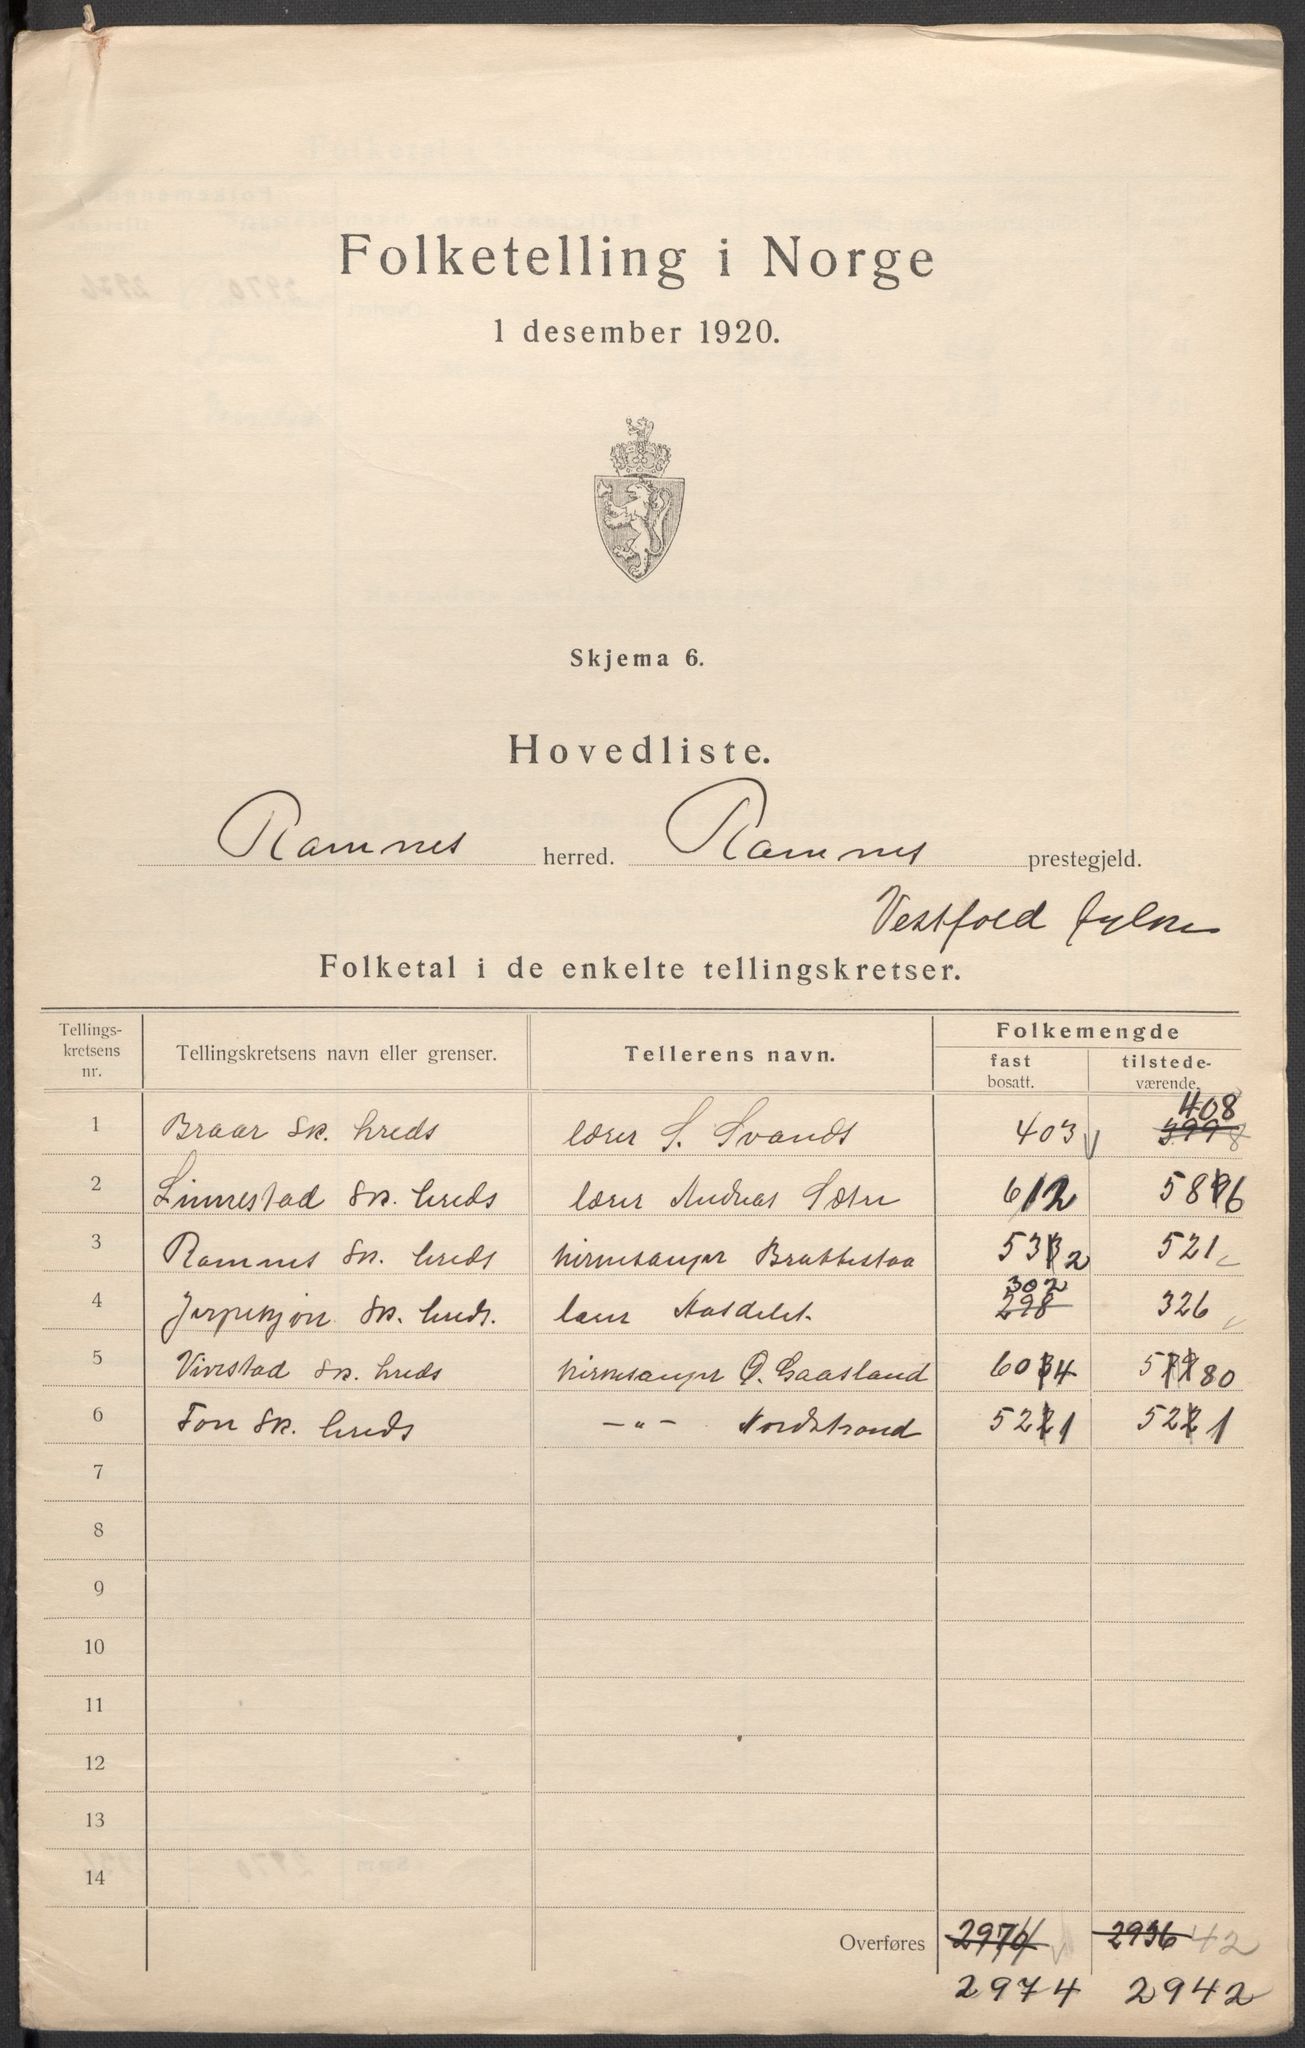 Folketelling i Norge
1 desember 1920.
Skjema 6.
Hovedliste.
Ramnes herred. Ramnes prestegjeld.
Vestfold fylke
Folketal i de enkelte tellingskretser.
Tellings-kretsens nr. Tellingskretsens navn eller grenser. Tellerens navn. Folkemengde
fast bosatt. tilstede-værende.
408
1 Braar sk. kreds lærer S. Svands 403 399
2 Linnestad sk. kreds lærer Andreas Sætre 612 586
3 Ramnes sk. kreds kirkesanger Brattestaa 532 521
302
4 Jerpekjøn sk. kreds. lærer 298 326
5 Vivestad sk. kreds kirkesanger O. Gaasland 604 580
6 Fon sk. kreds -"- Nordstrand 521 521
7
8
9
10
11
12
13
14
Overføres 2970 2936 42
2974 2942